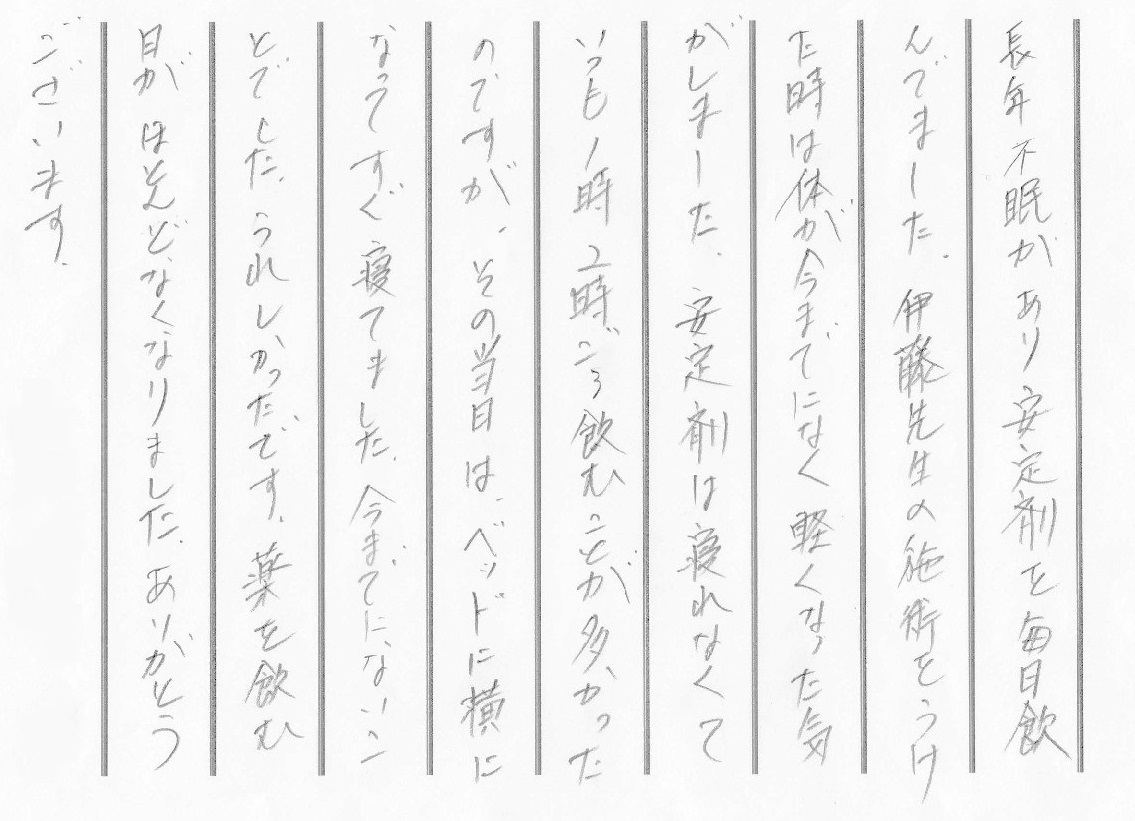 長年不眠があり安定剤を毎日飲
んでました。伊藤先生の施術をうけ
た時は体が今までになく軽くなった気
がしました。安定剤は寝れなくて
いつも1時2時ごろ飲むことが多かった
のですが、その当日は、ベッドに横に
なってすぐ寝てました。今までにないこ
とでした。うれしかったです。薬を飲む
日がほとんどなくなりました。ありがとう
ございます。